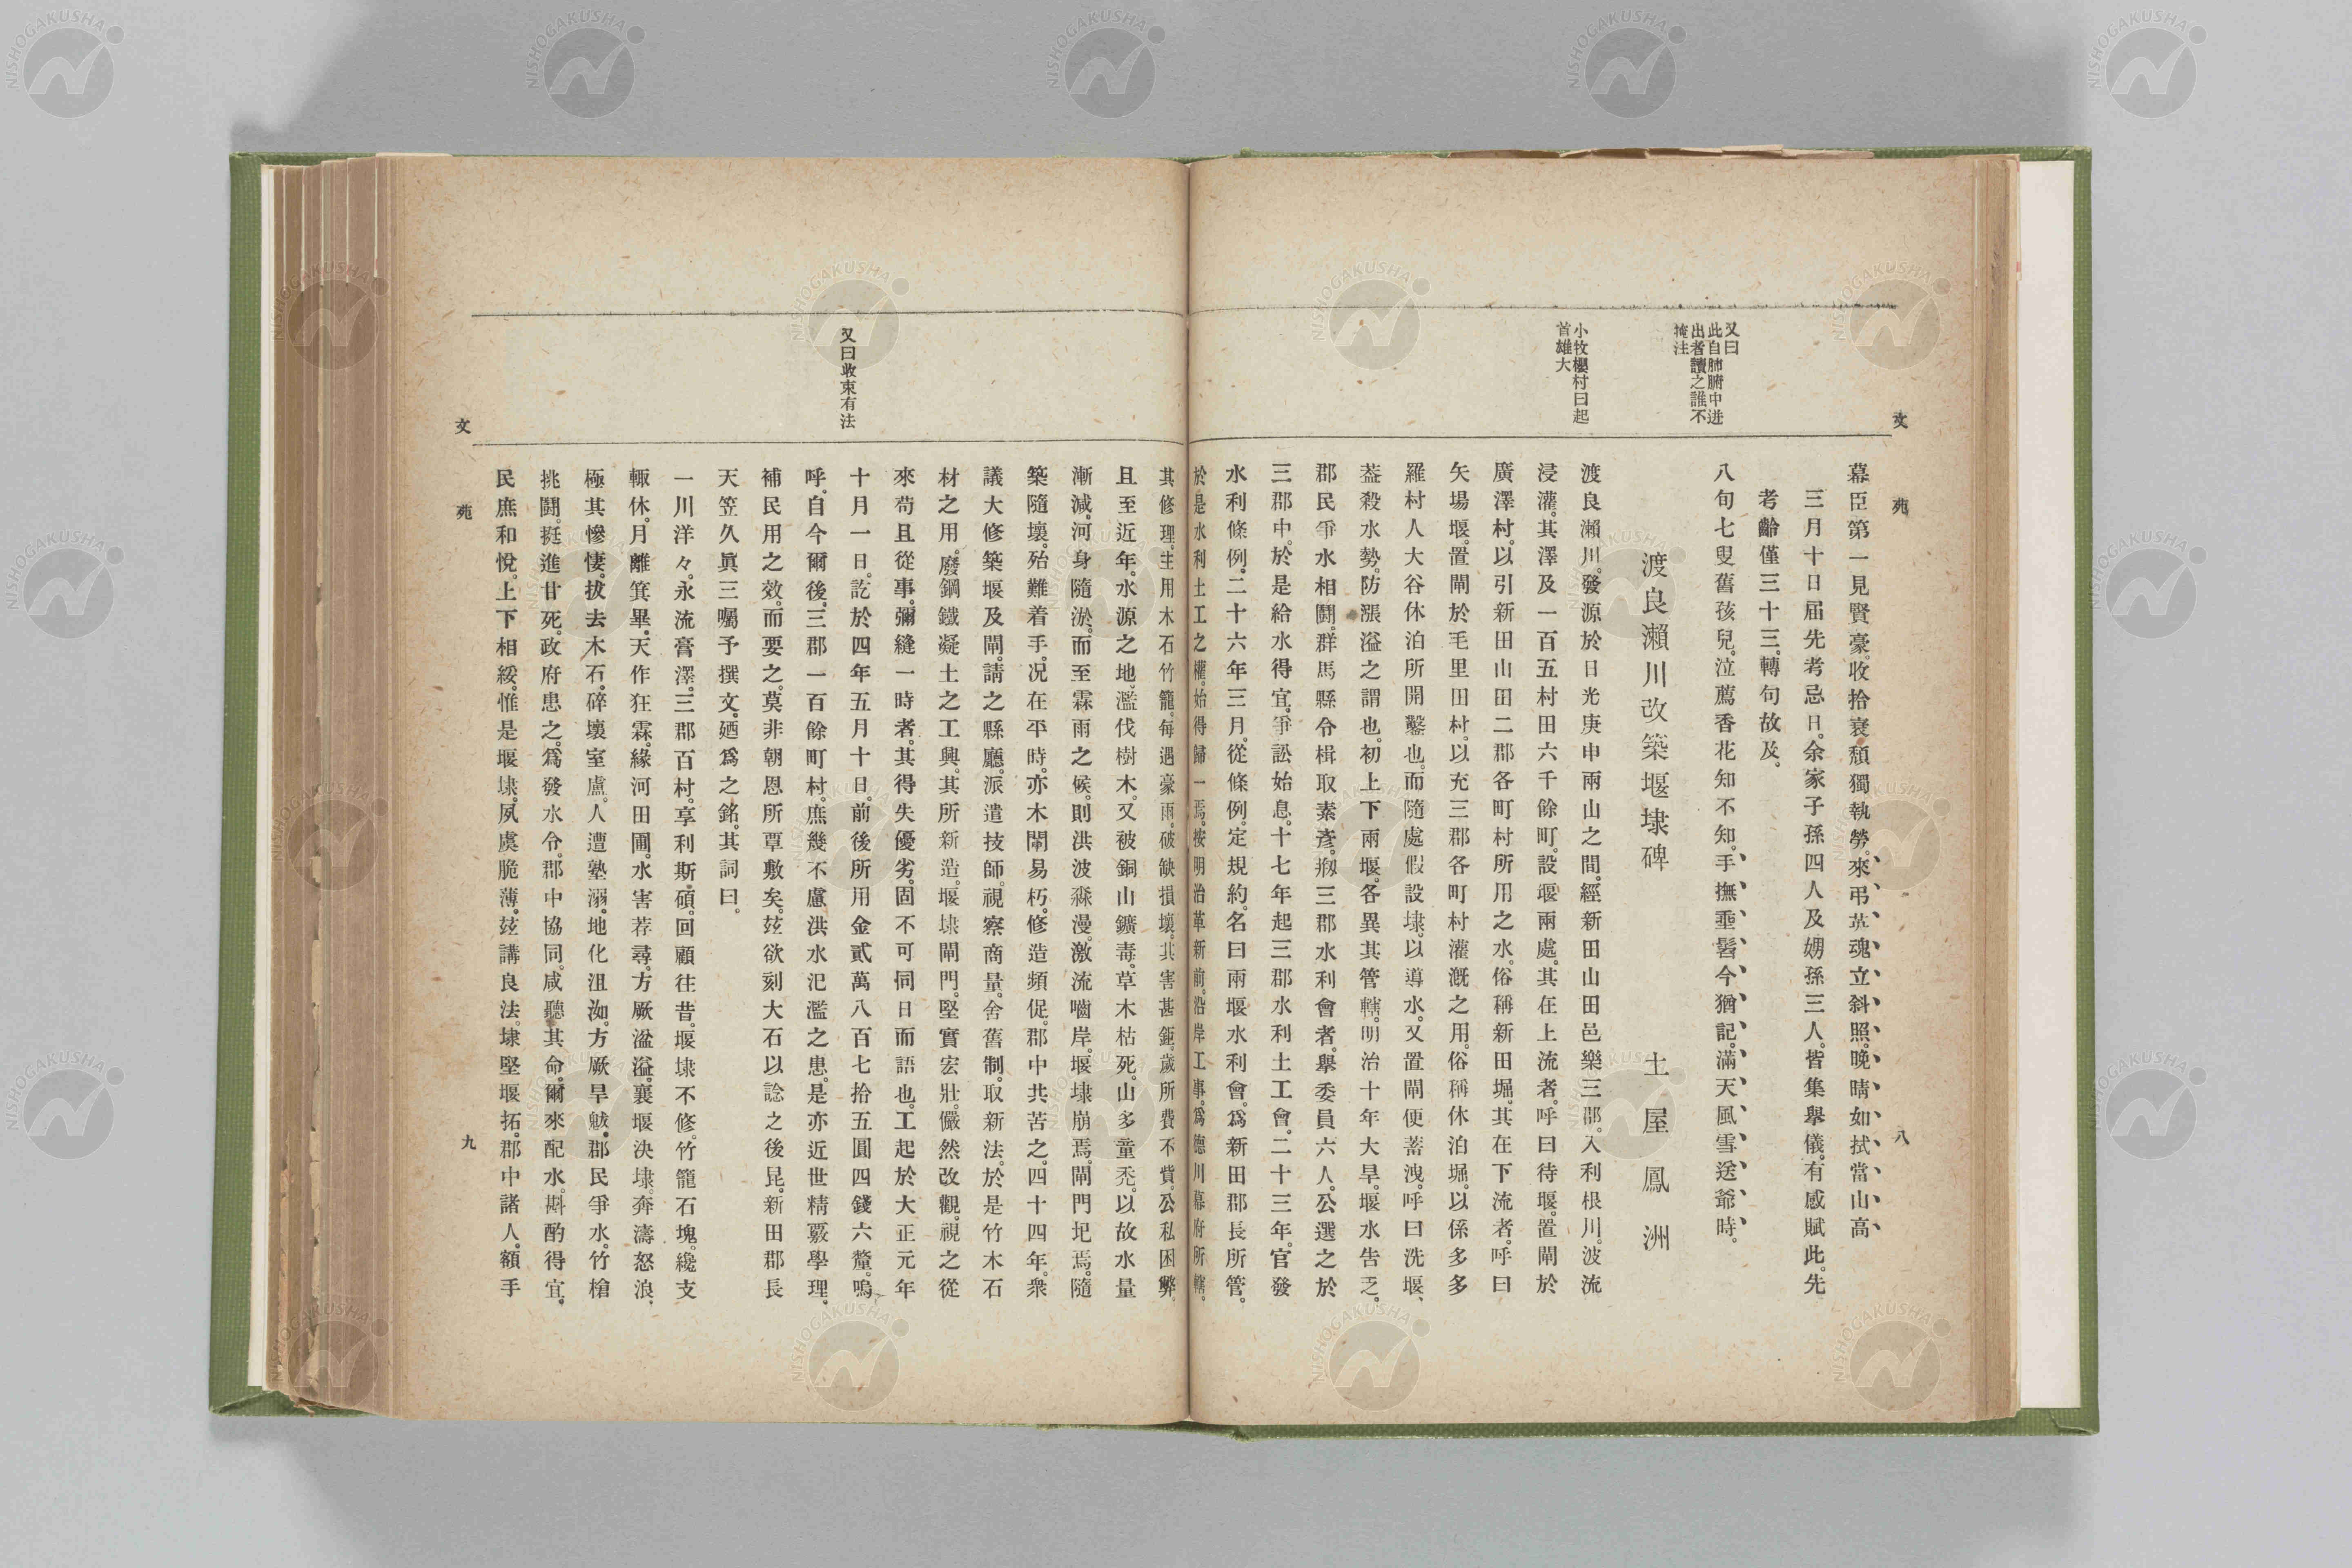 文苑
八
又曰
此自肺腑中迸
出者讀之誰不
掩泣
小牧櫻村曰起
首雄大
幕臣第一見賢豪。收拾衰頽獨執勞。來弔英魂立斜照。晩晴如拭當山高
三月十日屆先考忌日。余家子孫四人及甥孫三人。皆集擧儀。有感賦此。先
考齡僅三十三。轉句故及。
八旬七叟舊孩兒。泣薦香花知不知。手撫垂髫今猶記。滿天風雪送爺時。
渡良瀨川改築堰埭碑 土屋鳳洲
渡良瀨川。發源於日光庚申兩山之間。經新田山田邑樂三郡。入利根川。波流
浸灌。其澤及一百五村田六千餘町。設堰兩處。其在上流者。呼曰待堰。置閘於
廣澤村。以引新田山田二郡各町村所用之水。俗稱新田堀。其在下流者。呼曰
矢場堰。置閘於毛里田村。以充三郡各町村灌漑之用。俗稱休泊堀。以係多多
羅村人大谷休泊所開鑿也。而隨處假設埭。以導水。又置閘便蓄洩。呼曰洗堰、
葢殺水勢。防漲溢之謂也。初上下兩堰。各異其管轄。明治十年大旱。堰水告乏。
郡民爭水相鬪。群馬縣令楫取素彥。剏三郡水利會者。擧委員六人。公選之於
三郡中。於是給水得宜。爭訟始息。十七年起三郡水利土工會。二十三年。官發
水利條例。二十六年三月。從條例。定規約。名曰兩堰水利會。爲新田郡長所管。
於是水利土工之權。始得歸一焉。按明治革新前。沿岸工事。爲德川幕府所轄。
其修理。主用木石竹籠。每遇豪雨。破缺損壞。其害甚鉅。歲所費不貲。公私困弊。
且至近年。水源之地。濫伐樹木。又被銅山鑛毒。草木枯死。山多童禿。以故水量
漸減。河身隨淤。而至霖雨之候。則洪波淼漫。激流嚙岸。堰埭崩焉。閘門圮焉。隨
築隨壞。殆難着手。況在平時。亦木閘易朽。修造頻促。郡中共苦之。四十四年。衆
議大修築堰及閘。請之縣廳。派遣技師。視察商量。舍舊制。取新法。於是竹木石
材之用。廢鋼鐵凝土之工興。其所新造。堰埭閘門。堅實宏壯。儼然改觀。視之從
來苟且從事。彌縫一時者。其得失優劣。固不可同日而語也。工起於大正元年
十月一日。訖於四年五月十日。前後所用金貳萬八百七拾五圓四錢六釐。嗚
呼。自今爾後。三郡一百餘町村。庶幾不慮洪水氾濫之患。是亦近世精覈學理、
補民用之效。而要之。莫非朝恩所覃敷矣。茲欲刻大石以諗之後昆。新田郡長
天笠久眞三囑予撰文。廼爲之銘。其詞曰。
一川洋々。永流膏澤。三郡百村。享利斯碩。回顧往昔。堰埭不修。竹籠石塊。纔支
輙休。月離箕畢。天作狂霖。緣河田圃。水害荐尋。方厥溢溢。襄堰決埭。奔濤怒浪、
極其慘悽。拔去木石。碎壞室盧。人遭墊溺。地化沮洳。方厥旱魃。郡民爭水。竹槍
挑鬪。挺進甘死。政府患之。爲發水令。郡中協同。咸聽其命。爾來配水。斟酌得宜。
民庶和悅。上下相綏。惟是堰埭。夙虞脆薄。茲講良法。埭堅堰拓。郡中諸人。額手
又曰收束有法
文苑
九